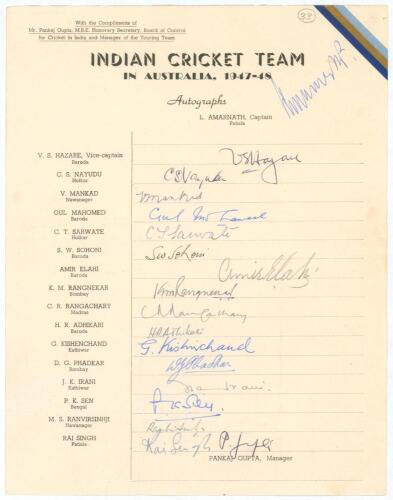 33
With the Compliments of
Mr. Pankaj Gupta, M.B.E. Honorary Secretary, Board of Control
for Cricket in India and Manager of the Touring Team
INDIAN CRICKET TEAM
IN AUSTRALIA, 1947-48
Autographs
L. AMARNATH, Captain
Patiala
V. S. HAZARE, Vice-captain
Baroda
V S Hazare
C. S. NAYUDU
Holkar
C S Nayudu
V. MANKAD
Nawanagar
V Mankad
GUL MAHOMED
Baroda
Gul
C. T. SARWATE
Holkar
C T Sarwate
S. W. SOHONI
Baroda
S W Sohoni
AMIR ELAHI
Baroda
Amir Elahi
K. M. RANGNEKAR
Bombay
K M Rangnekar
C. R. RANGACHARY
Madras
C R Rangachary
H. R. ADHIKARI
Baroda
H R Adhikari
G. KISHENCHAND
Kathiwar
G. Kishenchand
D. G. PHADKAR
Bombay
D G Phadkar
J. K. IRANI
Kathiwar
Irani
P. K. SEN
Bengal
P K Sen
M. S. RANVIRSINHJI
Nawanagar
RAI SINGH
Patiala
Rai Singh P. Gupta
PANKAJ GUPTA, Manager